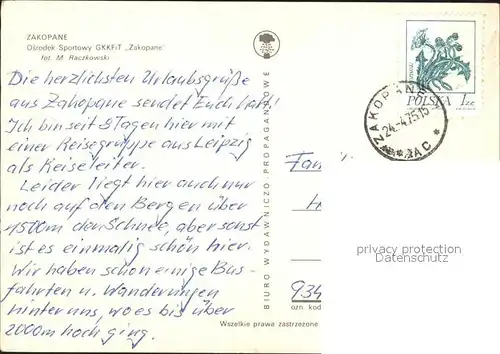 ZAKOPANE
Ośrodek Sportowy GKKFiT „Zakopane"
fot. M. Raczkowski
Die herzlichsten Urlaubsgrüße
aus Zakopane sendet Euch
Ich bin seit 9 Tagen hier mit
einer Reisegruppe aus Leipzig
als Reiseleiter.
Leider liegt hier auch nur
noch auf den Bergen über
1500m der Schnee, aber sonst
ist es einmalig schön hier.
Wir haben schon einige Bus-
fahrten u. Wanderungen
hinter uns, wo es bis über
2000m hoch ging.
BIURO WYDAWNICZO-PROPAGANDOWE
Wszelkie prawa zastrzeżone
POLSKA 1 ZŁ
ZAKOPANE
24.-4.75.15
Fam
H
934
ozn. kod
privacy protection
Datenschutz